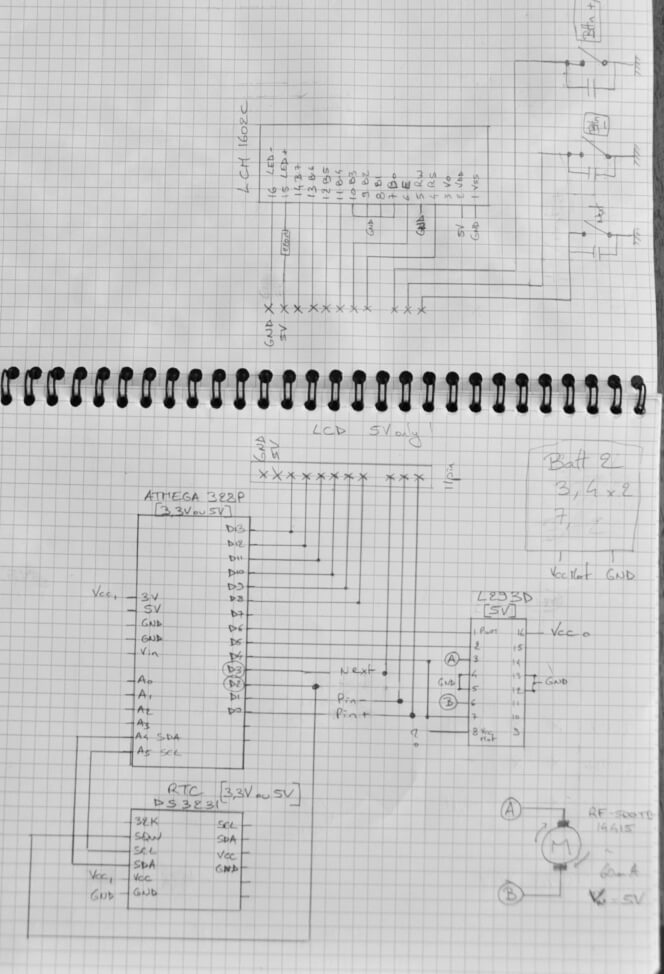 Bttn +
Bttn -
Next
LCM 1602C
16 LED-
15 LED+
14 B7
13 B6
12 B5
11 B4
10 B3
9 B2
8 B1
7 B0
6 E
5 RW
4 RS
3 VO
2 VDD
1 VSS
GND
GND
5V
GND
GND
5V
LCD 5V only!
GND
5V
11 pin
Batt 2
3,4 x 2
7,
Vcc Mot GND
ATMEGA 328P
[3,3V ou 5V]
Vcc,
3V
5V
GND
GND
Vin
A0
A1
A2
A3
A4 SDA
A5 SCL
D13
D12
D11
D10
D9
D8
D7
D6
D5
D4
D3
D2
D1
D0
Next
Pin-
Pin+
?
L293D
[5V]
1 Pwm 16
2 15
3 14
4 13
5 12
6 11
7 10
8 Vcc Mot 9
A
GND
B
Vcc
GND
RTC [3,3V ou 5V]
DS3231
32K
SQW
SCL
SDA
VCC
GND
SCL
SDA
VCC
GND
Vcc,
GND
A
M
B
RF-500TB
14415
~
= 5V